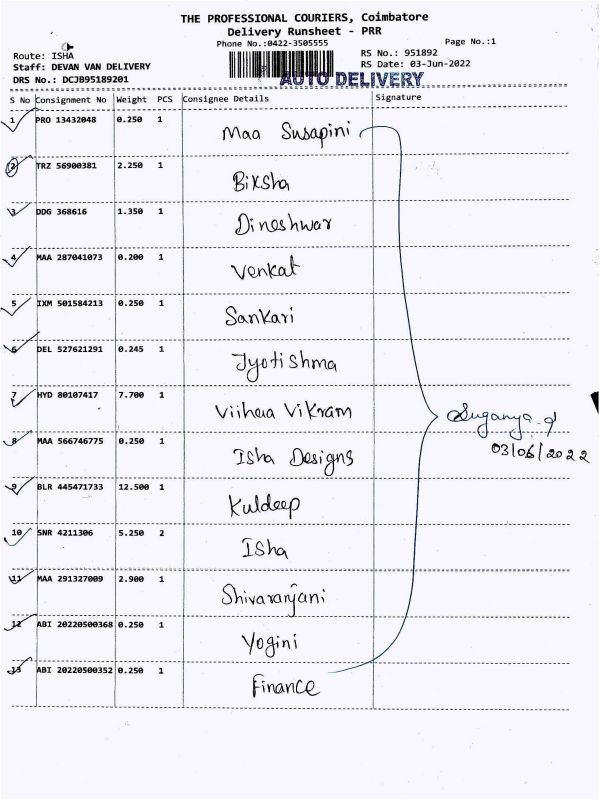 THE PROFESSIONAL COURIERS, Coimbatore
Delivery Runsheet - PRR
Phone No.:0422-3505555 Page No.:1
Route: ISHA RS No.: 951892
Staff: DEVAN VAN DELIVERY RS Date: 03-Jun-2022
DRS No.: DCJB95189201 AUTO DELIVERY
S No Consignment No Weight PCS Consignee Details Signature
1 PRO 13432048 0.250 1 Maa Susapini
2 TRZ 56900381 2.250 1 Biksha
3 DDG 368616 1.350 1 Dineshwar
4 MAA 287041073 0.200 1 Venkat
5 IXM 501584213 0.250 1 Sankari
6 DEL 527621291 0.245 1 Jyotishma
7 HYD 80107417 7.700 1 Vikram
Suganya.g
8 MAA 566746775 0.250 1 Isha Designs
03/06/2022
9 BLR 445471733 12.500 1 Kuldeep
10 SNR 4211306 5.250 2 Isha
11 MAA 291327009 2.900 1 Shivaranjani
12 ABI 20220500368 0.250 1 Yogini
13 ABI 20220500352 0.250 1 Finance